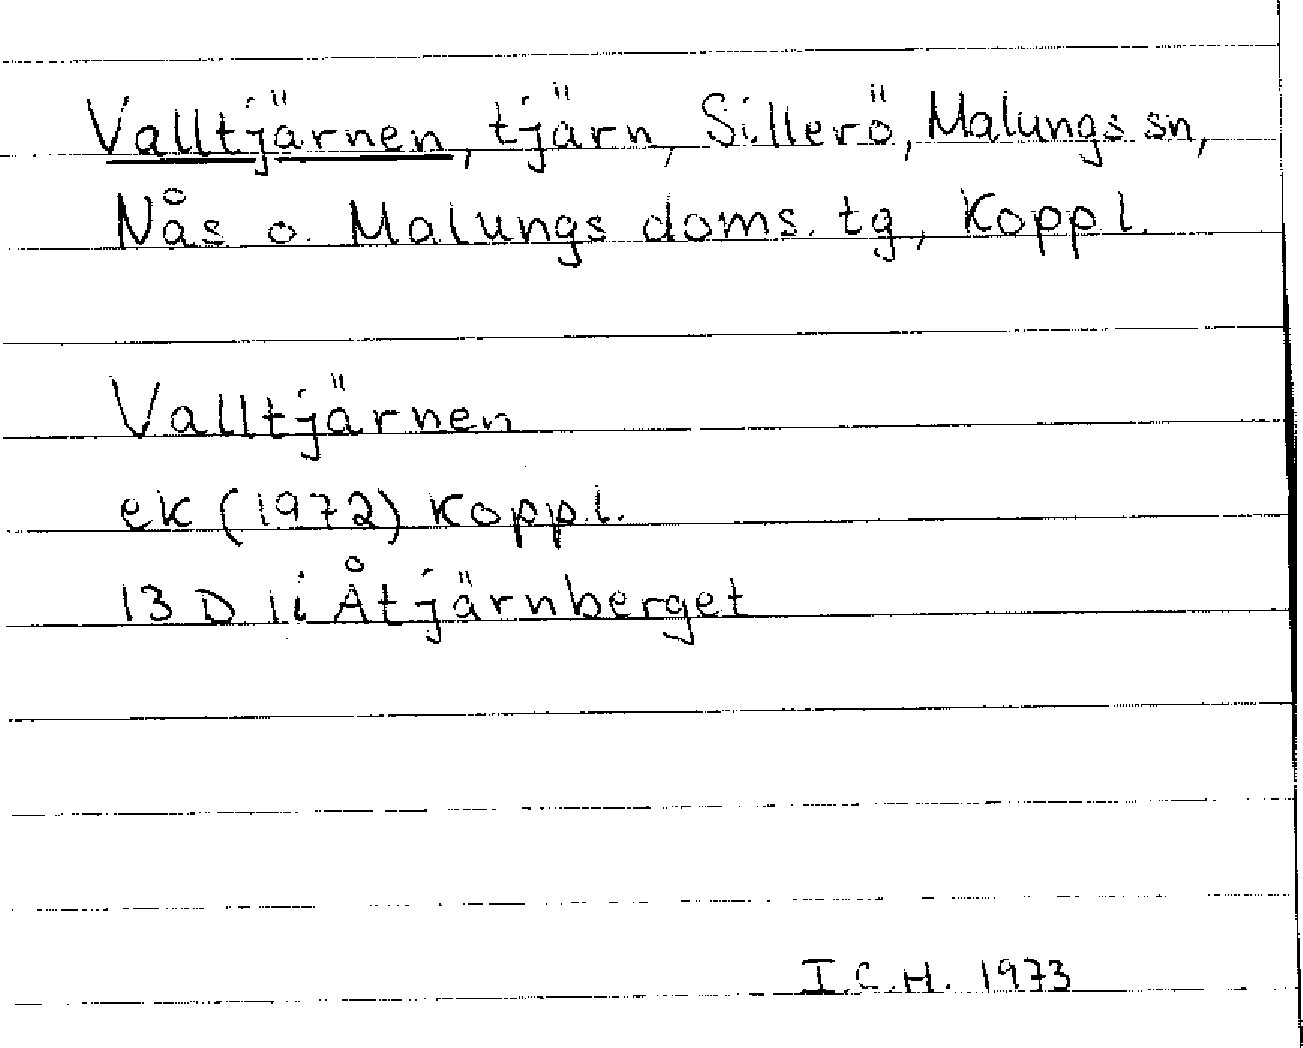 Valltjärnen, tjärn, Sillerö, Malungs sn,
Nås o. Malungs doms. tg, Kopp l.
Valltjärnen
ek (1972) Kopp.l.
13 D 1i Åtjärnberget
I.C.H. 1973